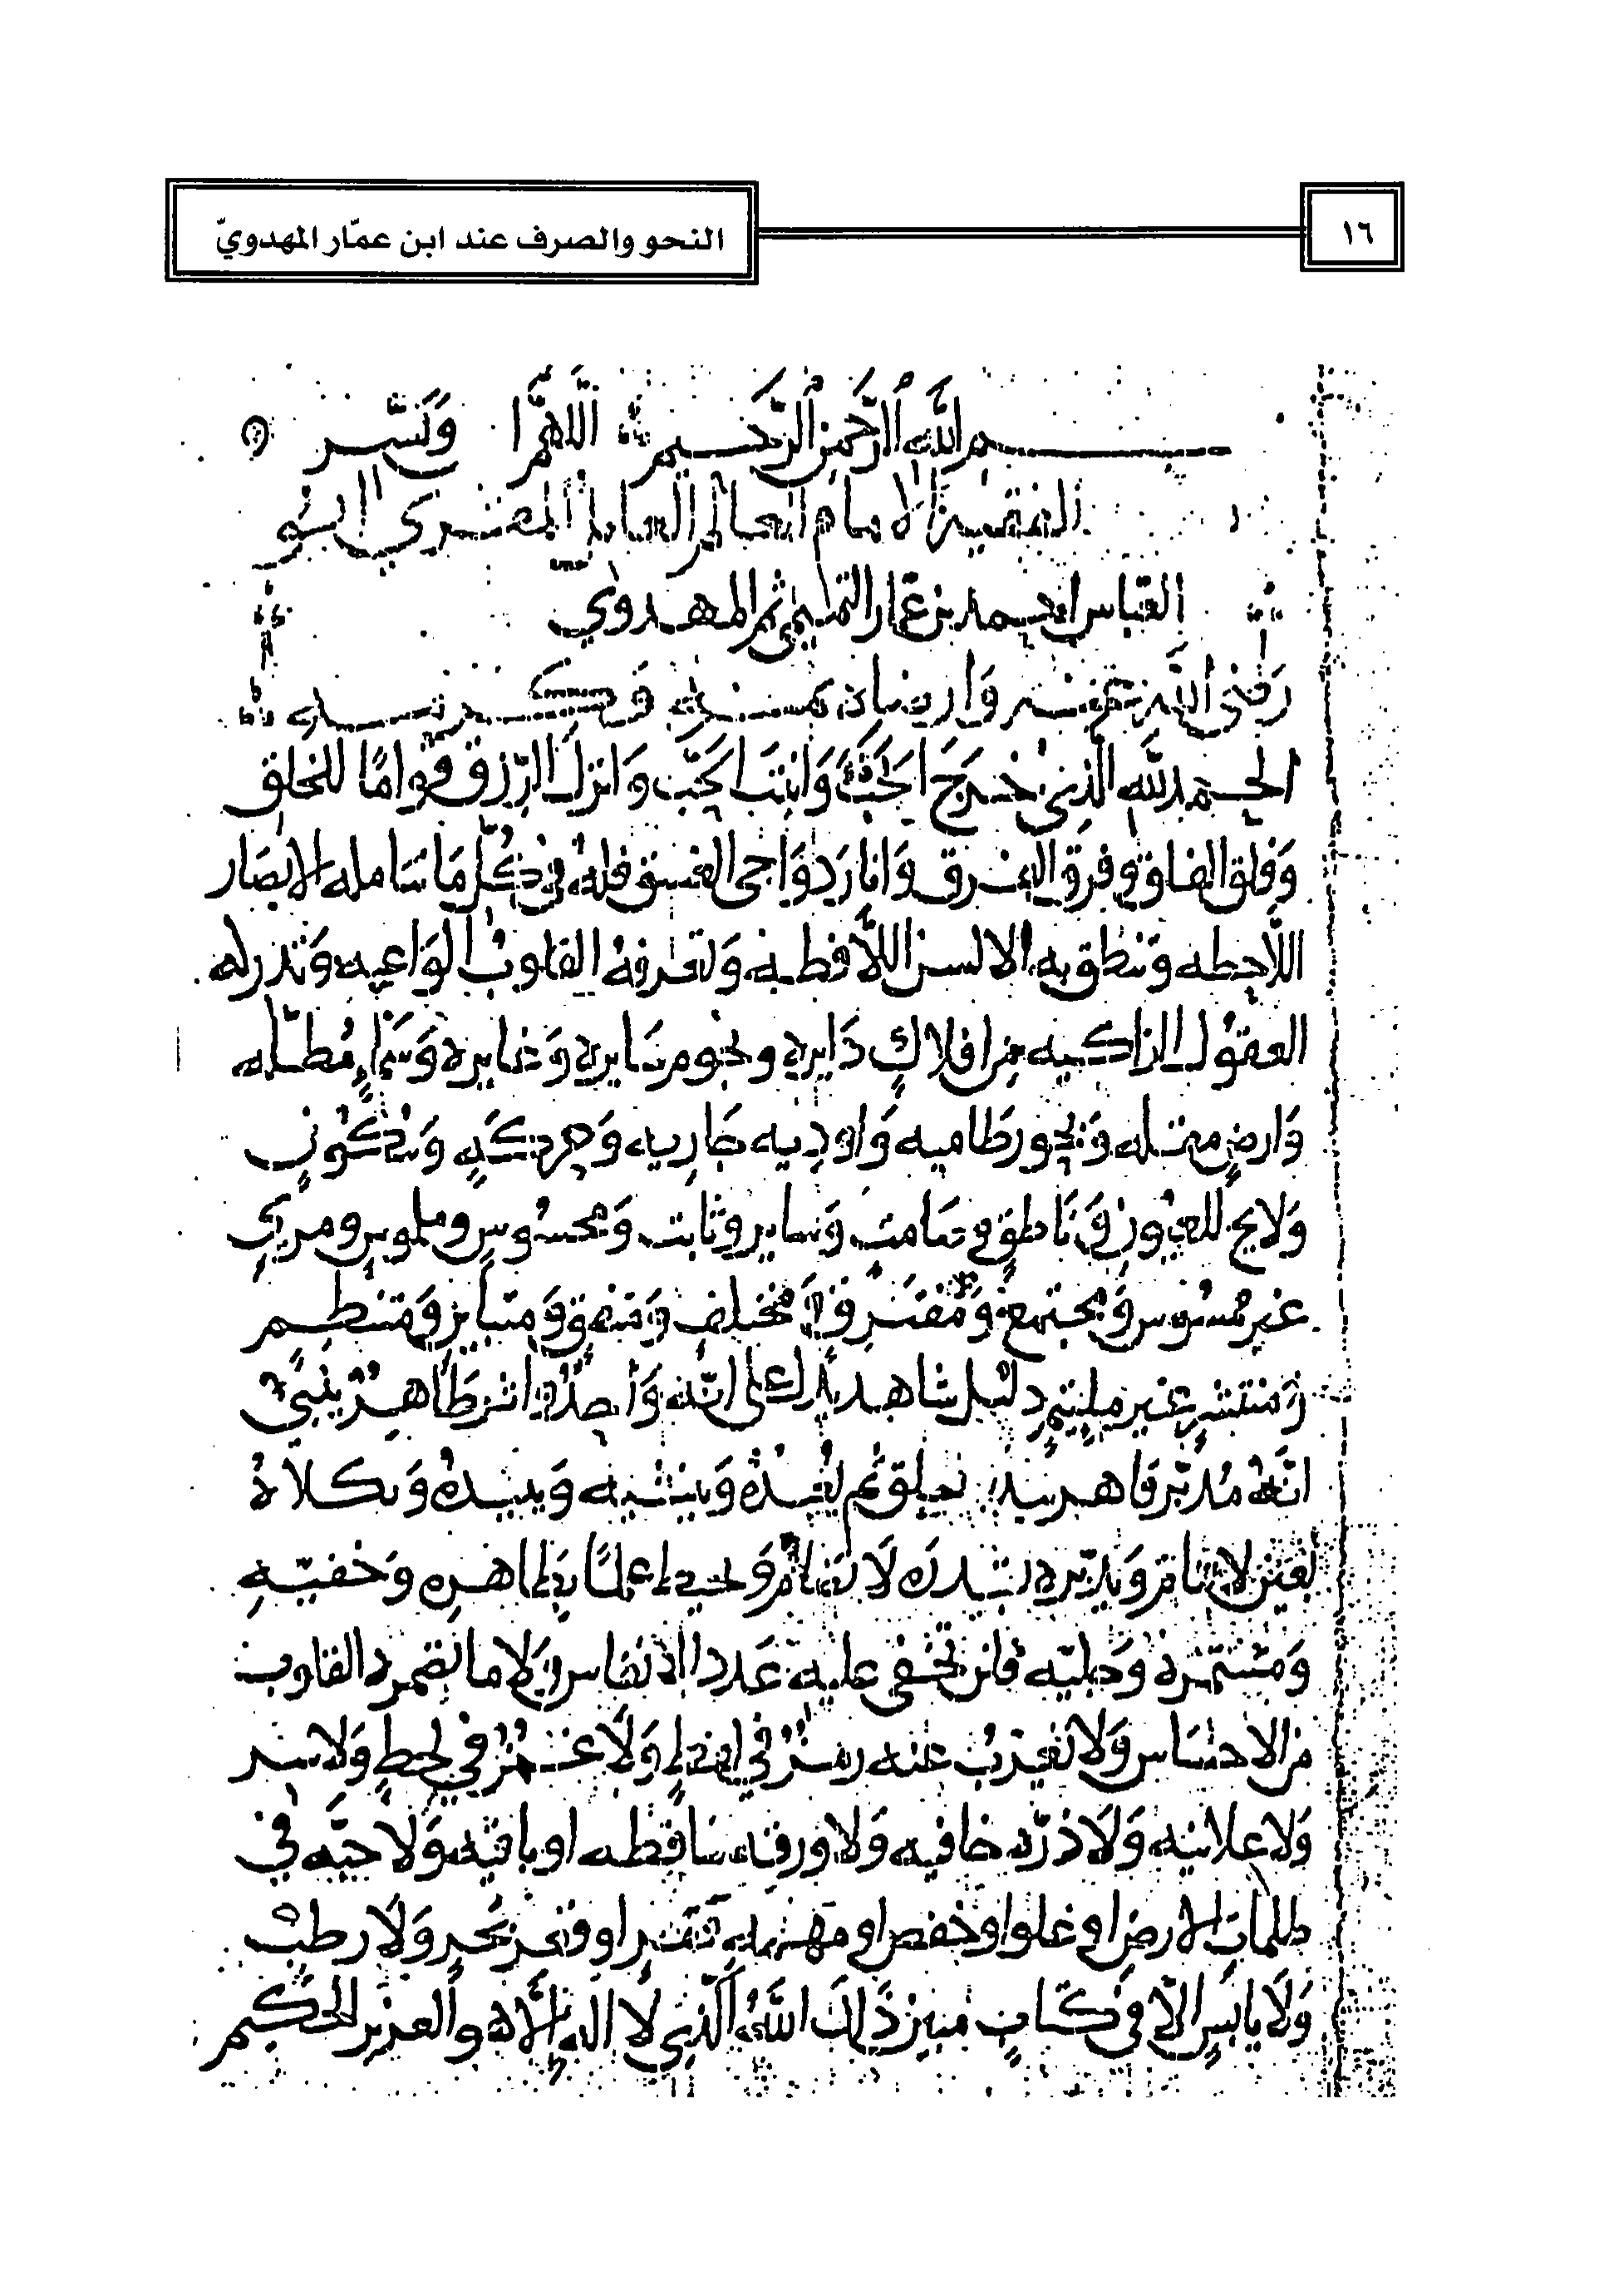 ١٦
النحو والصرف عند ابن عمّار المهدويّ
بسم الله الرحمن الرحيم اللهم ويسر
الفقيه الامام العالم العامل المقري ابو
العباس احمد بن عمار التميمي ثم المهدوي
رضي الله عنه وارضاه بمنه وكرمه
الحمد لله الذي خرج الحب وانزل الرزق قواما للخلق
وفلق الفلق وفرق الفرق وانار دواجي الغسق فله في كل ما تتامله الابصار
اللاحظه وتنطق به الالسن اللافظه وتعرفه القلوب الواعيه وتدركه
العقول الزاكيه من افلاك دايره ونجوم سايره وغايره وسماء مظله
وارض مقله وبحور طاميه واوديه جاريه وحركه وسكون
ولايح للعيون وناطق وصامت وساير وثابت ومحسوس وملموس ومريي
غير ملموس ومجتمع ومفترق ومختلف ومتفق ومتباين ومنتظم
ومنتثر غير ملتئم دليل شاهد يدل على انه واحد واثر ظاهر ينبي
انه مدبر قاهر يخلق ثم يعيده وينشيه ويبيده ويكلاه
بعين لا تنام ويدبره بقدره لا ترام ويحيط علما بظاهره وخفيه
ومستتره وجليه فلن تخفى عليه عدد الانفاس ولا ما تضمره القلوب
من الاحساس ولا تعزب عنه رمز في لفظ ولا غمز في لحظ ولا سر
ولا علانيه ولا ذره خافيه ولا ورقه ساقطه او باقيه ولا حبه في
ظلمات الارض او علو او خفض او مهمه قفر او قعر بحر ولا رطب
ولا يابس الا في كتاب مبين ذلك الله الذي لا اله الا هو العزيز الحكيم